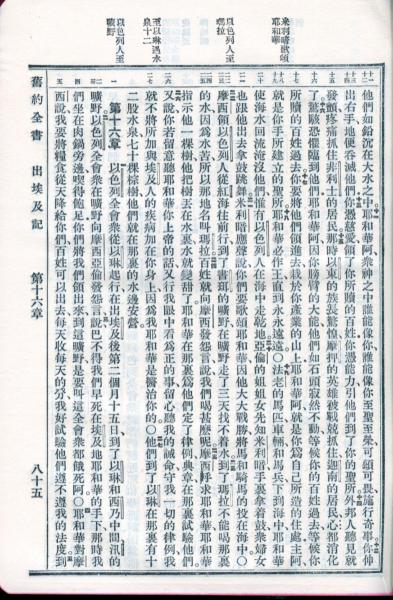 米利暗歌頌耶和華
以色列人至瑪拉
至以琳遇水泉十二
以色列人至曠野
他們如鉛沉在大水之中耶和華阿衆神之中誰能像你誰能像你至聖至榮可頌可畏施行奇事你伸
出右手地便吞滅他們你憑慈愛領了你所贖的百姓你憑能力引他們到了你的聖所外邦人聽見就
發顫疼痛抓住非利士的居民那時以東的族長驚惶摩押的英雄被戰兢抓住迦南的居民心都消化
了驚駭恐懼臨到他們耶和華阿因你膀臂的大能他們如石頭寂然不動等候你的百姓過去等候你
所贖的百姓過去你要將他們領進去栽於你產業的山上耶和華阿就是你爲自己所造的住處主阿
就是你手所建立的聖所耶和華必作王直到永永遠遠○法老的馬匹車輛和馬兵下到海中耶和華
使海水回流淹沒他們惟有以色列人在海中走乾地亞倫的姐姐女先知米利暗手裏拿着鼓衆婦女
也跟他出去拿鼓跳舞米利暗應聲說你們要歌頌耶和華因他大大戰勝將馬和騎馬的投在海中○
摩西領以色列人從紅海往前行到了書珥的曠野在曠野走了三天找不着水到了瑪拉不能喝那裏
的水因爲水苦所以那地名叫瑪拉百姓就向摩西發怨言說我們喝甚麼呢摩西呼求耶和華耶和華
指示他一棵樹他把樹丟在水裏水就變甜了耶和華在那裏爲他們定了律例典章在那裏試驗他們
又說你若留意聽耶和華你上帝的話又行我眼中看爲正的事留心聽我的誡命守我一切的律例我
就不將所加與埃及人的疾病加在你身上因爲我耶和華是醫治你的○他們到了以琳在那裏有十
二股水泉七十棵棕樹他們就在那裏的水邊安營
第十六章 以色列全會衆從以琳起行在出埃及後第二個月十五日到了以琳和西乃中間汛的
曠野以色列全會衆在曠野向摩西亞倫發怨言說巴不得我們早死在埃及地耶和華的手下那時我
們坐在肉鍋旁邊喫得飽足你們將我們領出來到這曠野是要叫這全會衆都餓死阿○耶和華對摩
西說我要將糧食從天降給你們百姓可以出去每天收每天的分我好試驗他們遵不遵我的法度到
舊約全書 出埃及記 第十六章 八十五